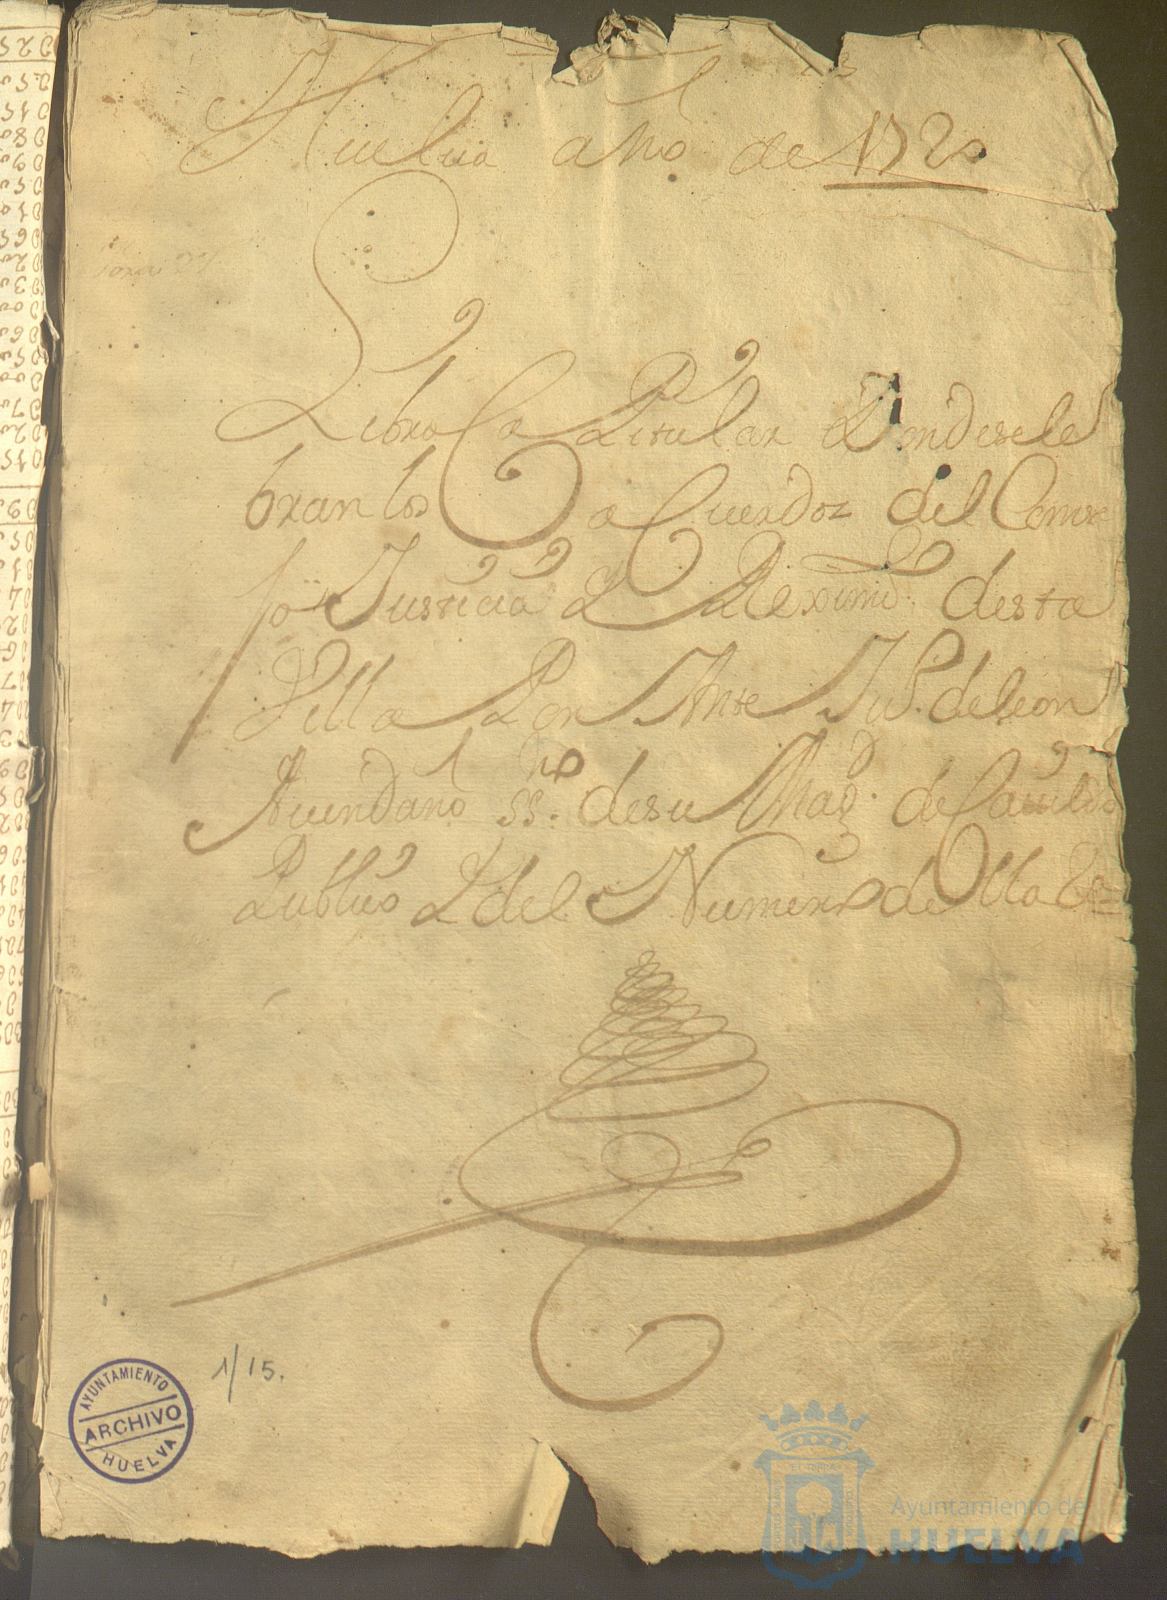 Huelua año de 1720
Libro Capitular Donde se cele
bran los aCuerdoz del Conse
jo Justicia Y Reximi.º desta
Villa Por Ante Ju.º de leon
Auendaño ss.no de su Mag.d de Cauildo
Publico Y del Numero de Ella
1/15.
AYUNTAMIENTO
ARCHIVO
HUELVA
Ayuntamiento de
HUELVA